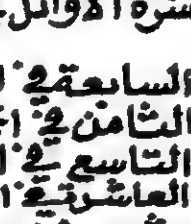 الاوائل
السابعة في
الثامن في
التاسع في
العاشر في